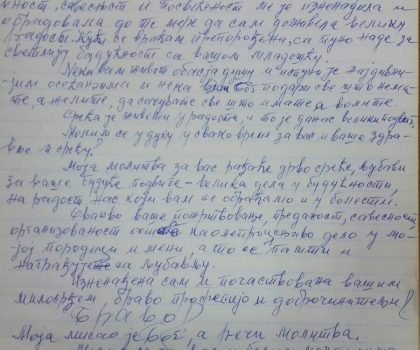 ност, савесност и посвећеност ме је изненадила и
обрадовала до те мере да сам доживела велику
радост. Кући се враћам препорођена, са пуно наде за
светлију будућност са вашом младошћу.
Нека вам живот обасја душу и испуни је најдивни-
јим осећањима и нека вам Бог подари све што нема-
те а желите, да сачувате све што имате а волите.
Срећа је живети у радости, а то је данас велики подвиг.
Молим се у духу у свако време за вас и ваше здра-
вље и срећу!
Моја молитва за вас рађаће дрво среће, љубави
за ваше будуће подвиге - велика дела у будућности,
на радост нас који вам се обраћамо и у болести.
Овакво ваше пожртвовање, преданост, савесност,
организованост остаће као непроцењиво дело у мо-
јој породици и мени, а то се памти и
награђује са љубављу.
Изненађена сам и почаствована вашим
милосрђем, браво професије и доброчинитељи!
Браво!
Моја мисао је Бог, а речи молитва.